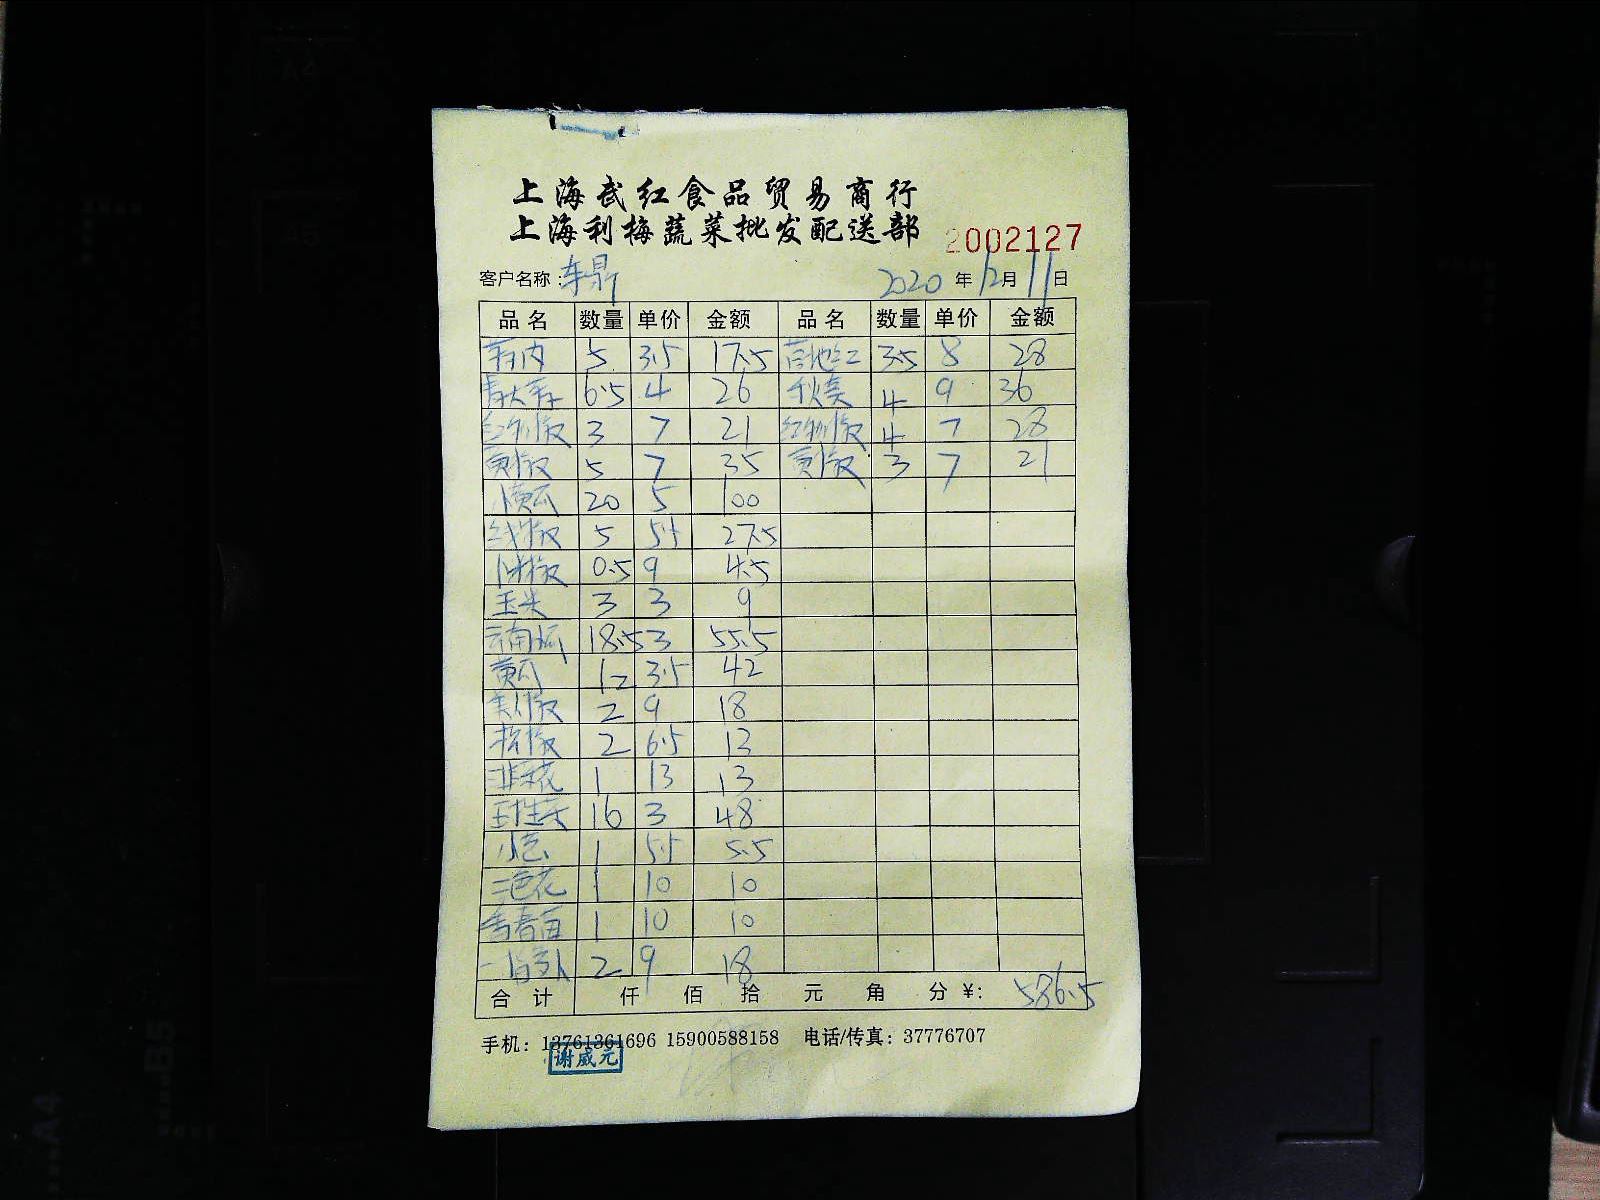 上海武红食品贸易商行
上海利梅蔬菜批发配送部
2002127
客户名称: 2020年12月11日
品名 数量 单价 金额 品名 数量 单价 金额
5 3.5 17.5 3.5 8 28
6.5 4 26 4 9 36
3 7 21 4 7 28
黄椒 5 7 35 黄椒 3 7 21
小黄瓜 20 5 100
线椒 5 5.5 27.5
0.5 9 4.5
玉米 3 3 9
云南瓜 18.5 3 55.5
黄瓜 12 3.5 42
美人椒 2 9 18
2 6.5 13
韭菜花 1 13 13
16 3 48
小葱 1 5.5 5.5
三色花 1 10 10
1 10 10
2 9 18
合计 仟 佰 拾 元 角 分 ¥: 586.5
手机: 13761361696 15900588158 电话/传真: 37776707
谢威元